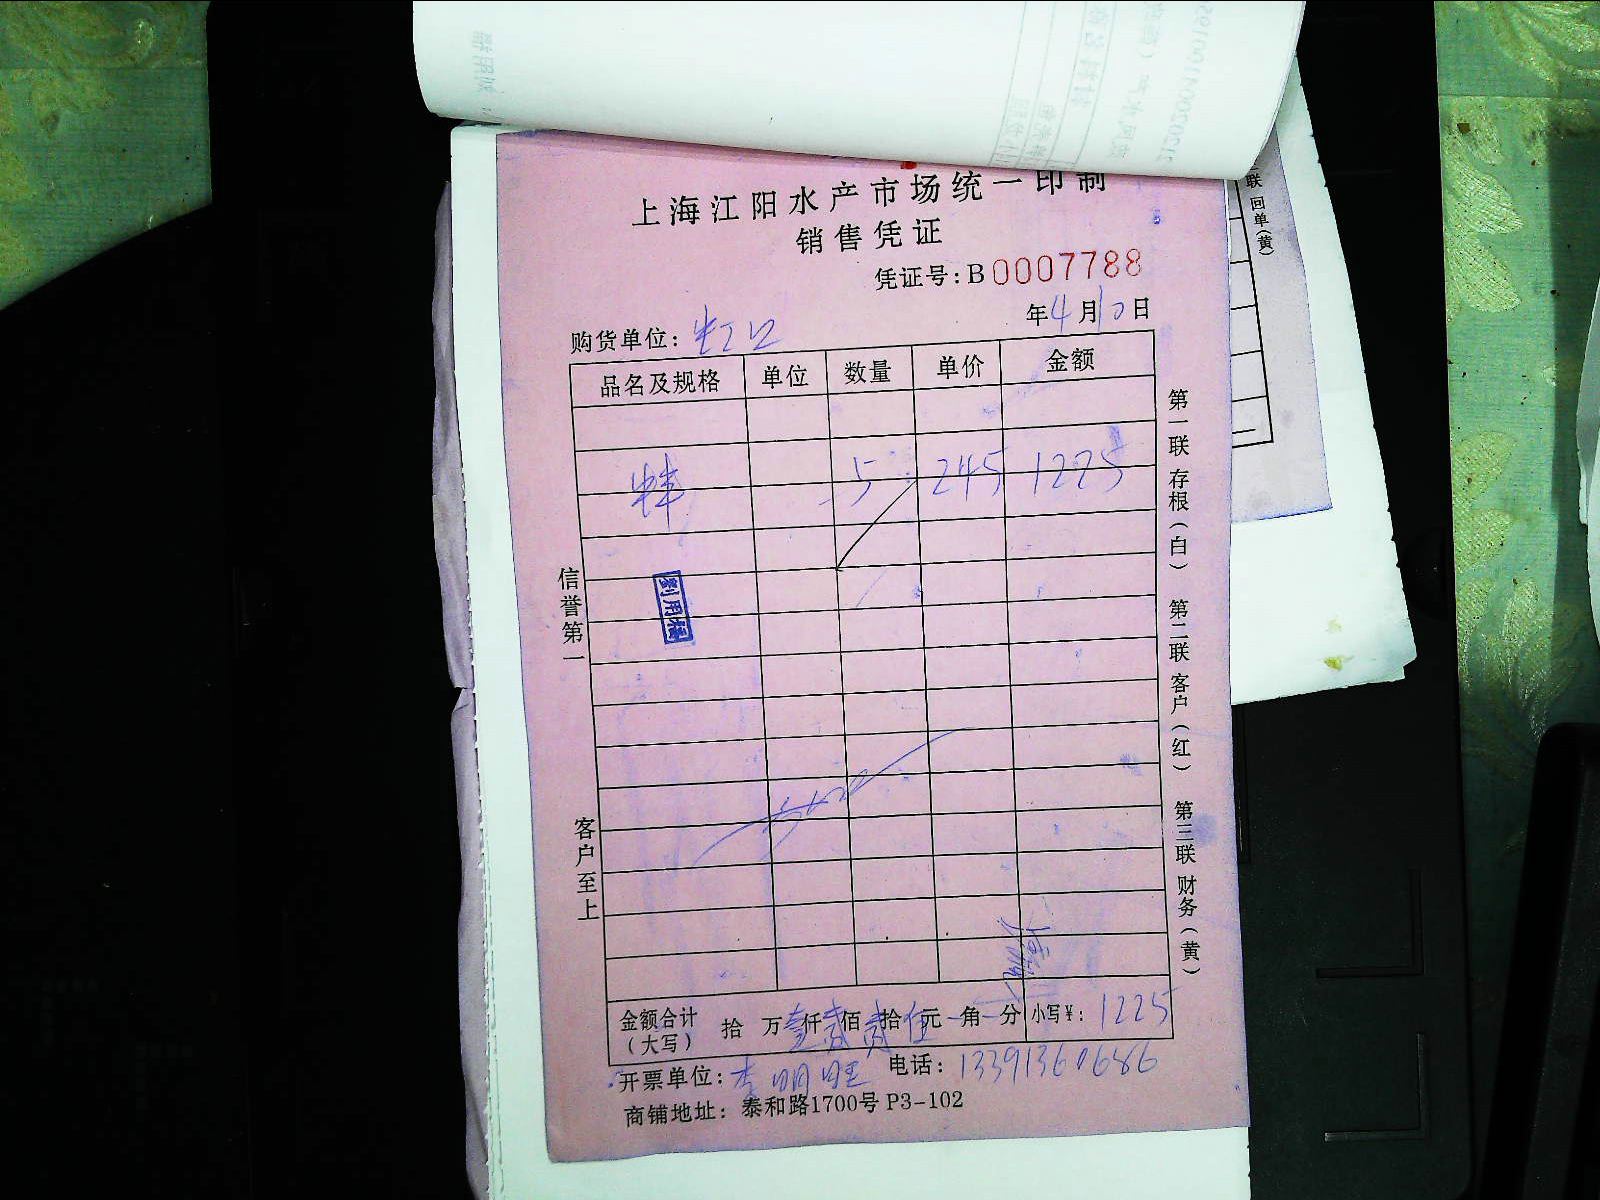 上海江阳水产市场统一印制
销售凭证
凭证号:B0007788
年4月10日
购货单位:虹口
品名及规格 单位 数量 单价 金额
蚌 5 245 1225
信誉第一
客户至上
第一联 存根(白) 第二联 客户(红) 第三联 财务(黄)
金额合计(大写) 拾 万壹仟贰佰贰拾伍元 角 分 小写¥: 1225
开票单位:李明旺 电话:13391360686
商铺地址:泰和路1700号 P3-102
联 回单(黄)